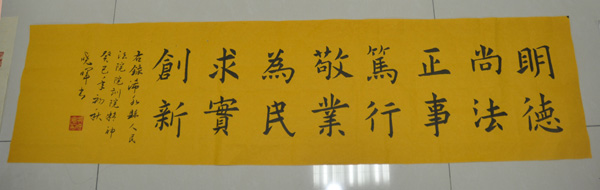 明德
尚法
正事
篤行
敬業
為民
求實
創新
右錄沛縣人民
法院院訓院精神
癸巳年初秋